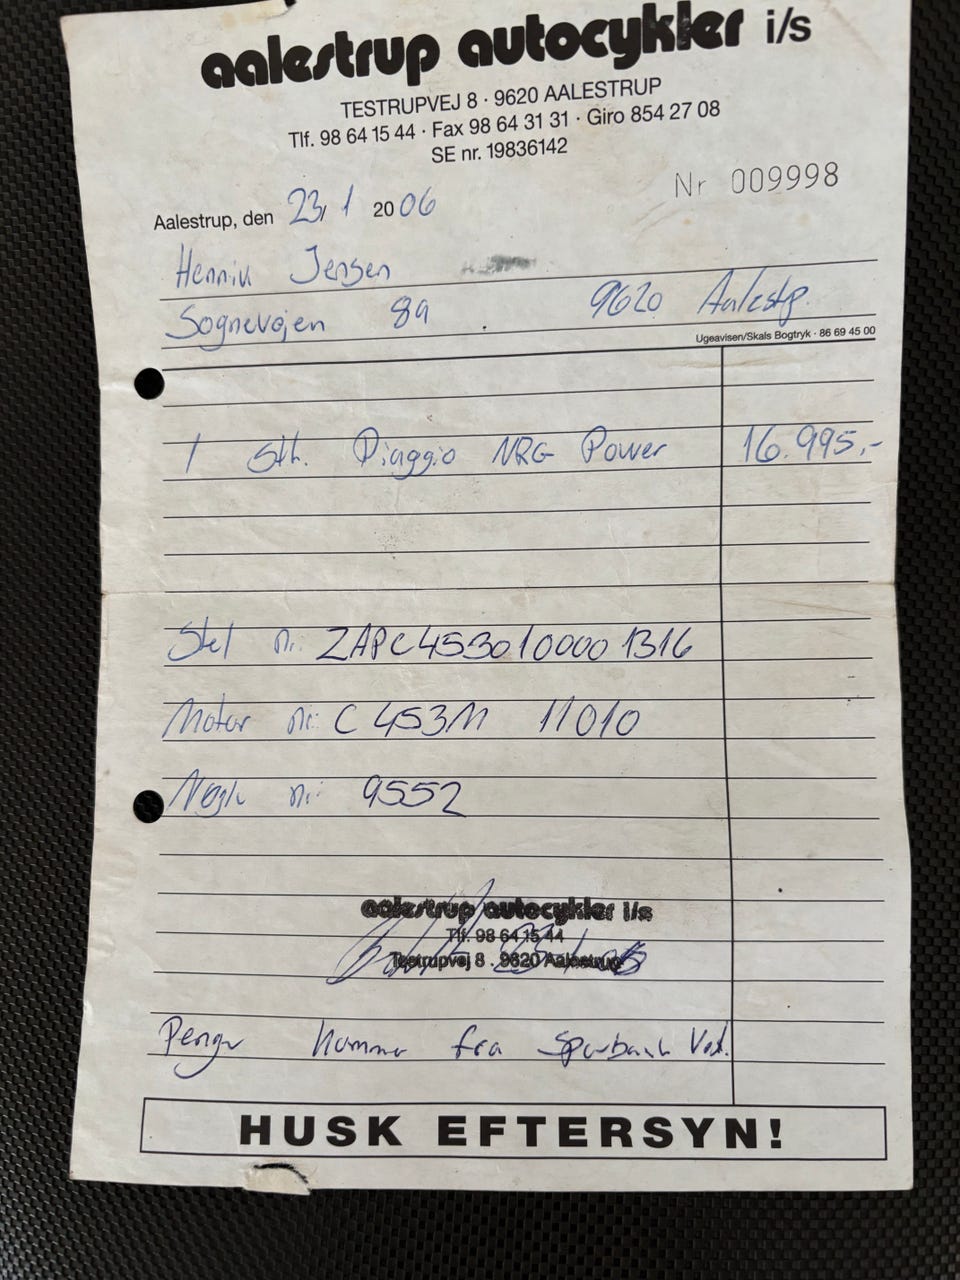 aalestrup autocykler i/s
TESTRUPVEJ 8 · 9620 AALESTRUP
Tlf. 98 64 15 44 · Fax 98 64 31 31 · Giro 854 27 08
SE nr. 19836142
Nr 009998
Aalestrup, den 23/1 2006
Hennik Jensen
Sognevejen 89 9620 Aalestp.
Ugeavisen/Skals Bogtryk · 86 69 45 00
1 stk. Piaggio NRG Power 16.995,-
Stel nr. ZAPC4530100001316
Motor nr: C453M 11010
Nøgle nr: 9552
aalestrup autocykler i/s
Tlf. 98 64 15 44
Testrupvej 8 . 9620 Aalestrup
Penge kommer fra Sparbank Vest.
HUSK EFTERSYN!